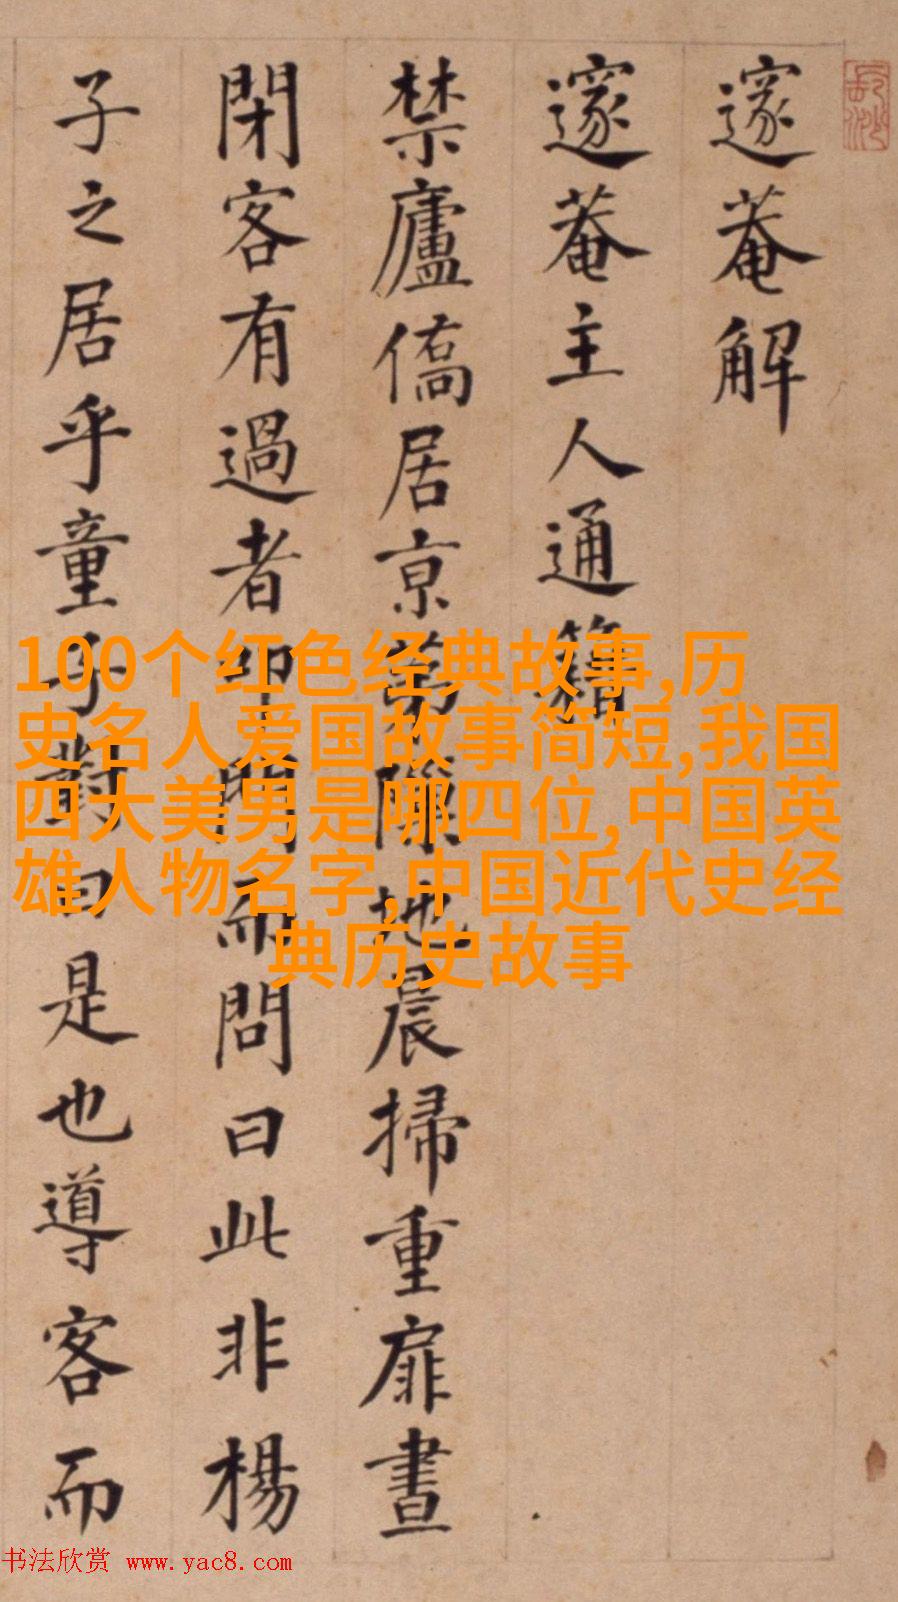 邃菴解
邃菴主人通籍
禁廬僑居京第隙地晨掃重扉晝
閉客有過者叩門而問曰此非楊
子之居乎童子對曰是也導客而
100个红色经典故事,历
史名人爱国故事简短,我国
四大美男是哪四位,中国英
雄人物名字,中国近代史经
典历史故事
书法欣赏 www.yac8.com